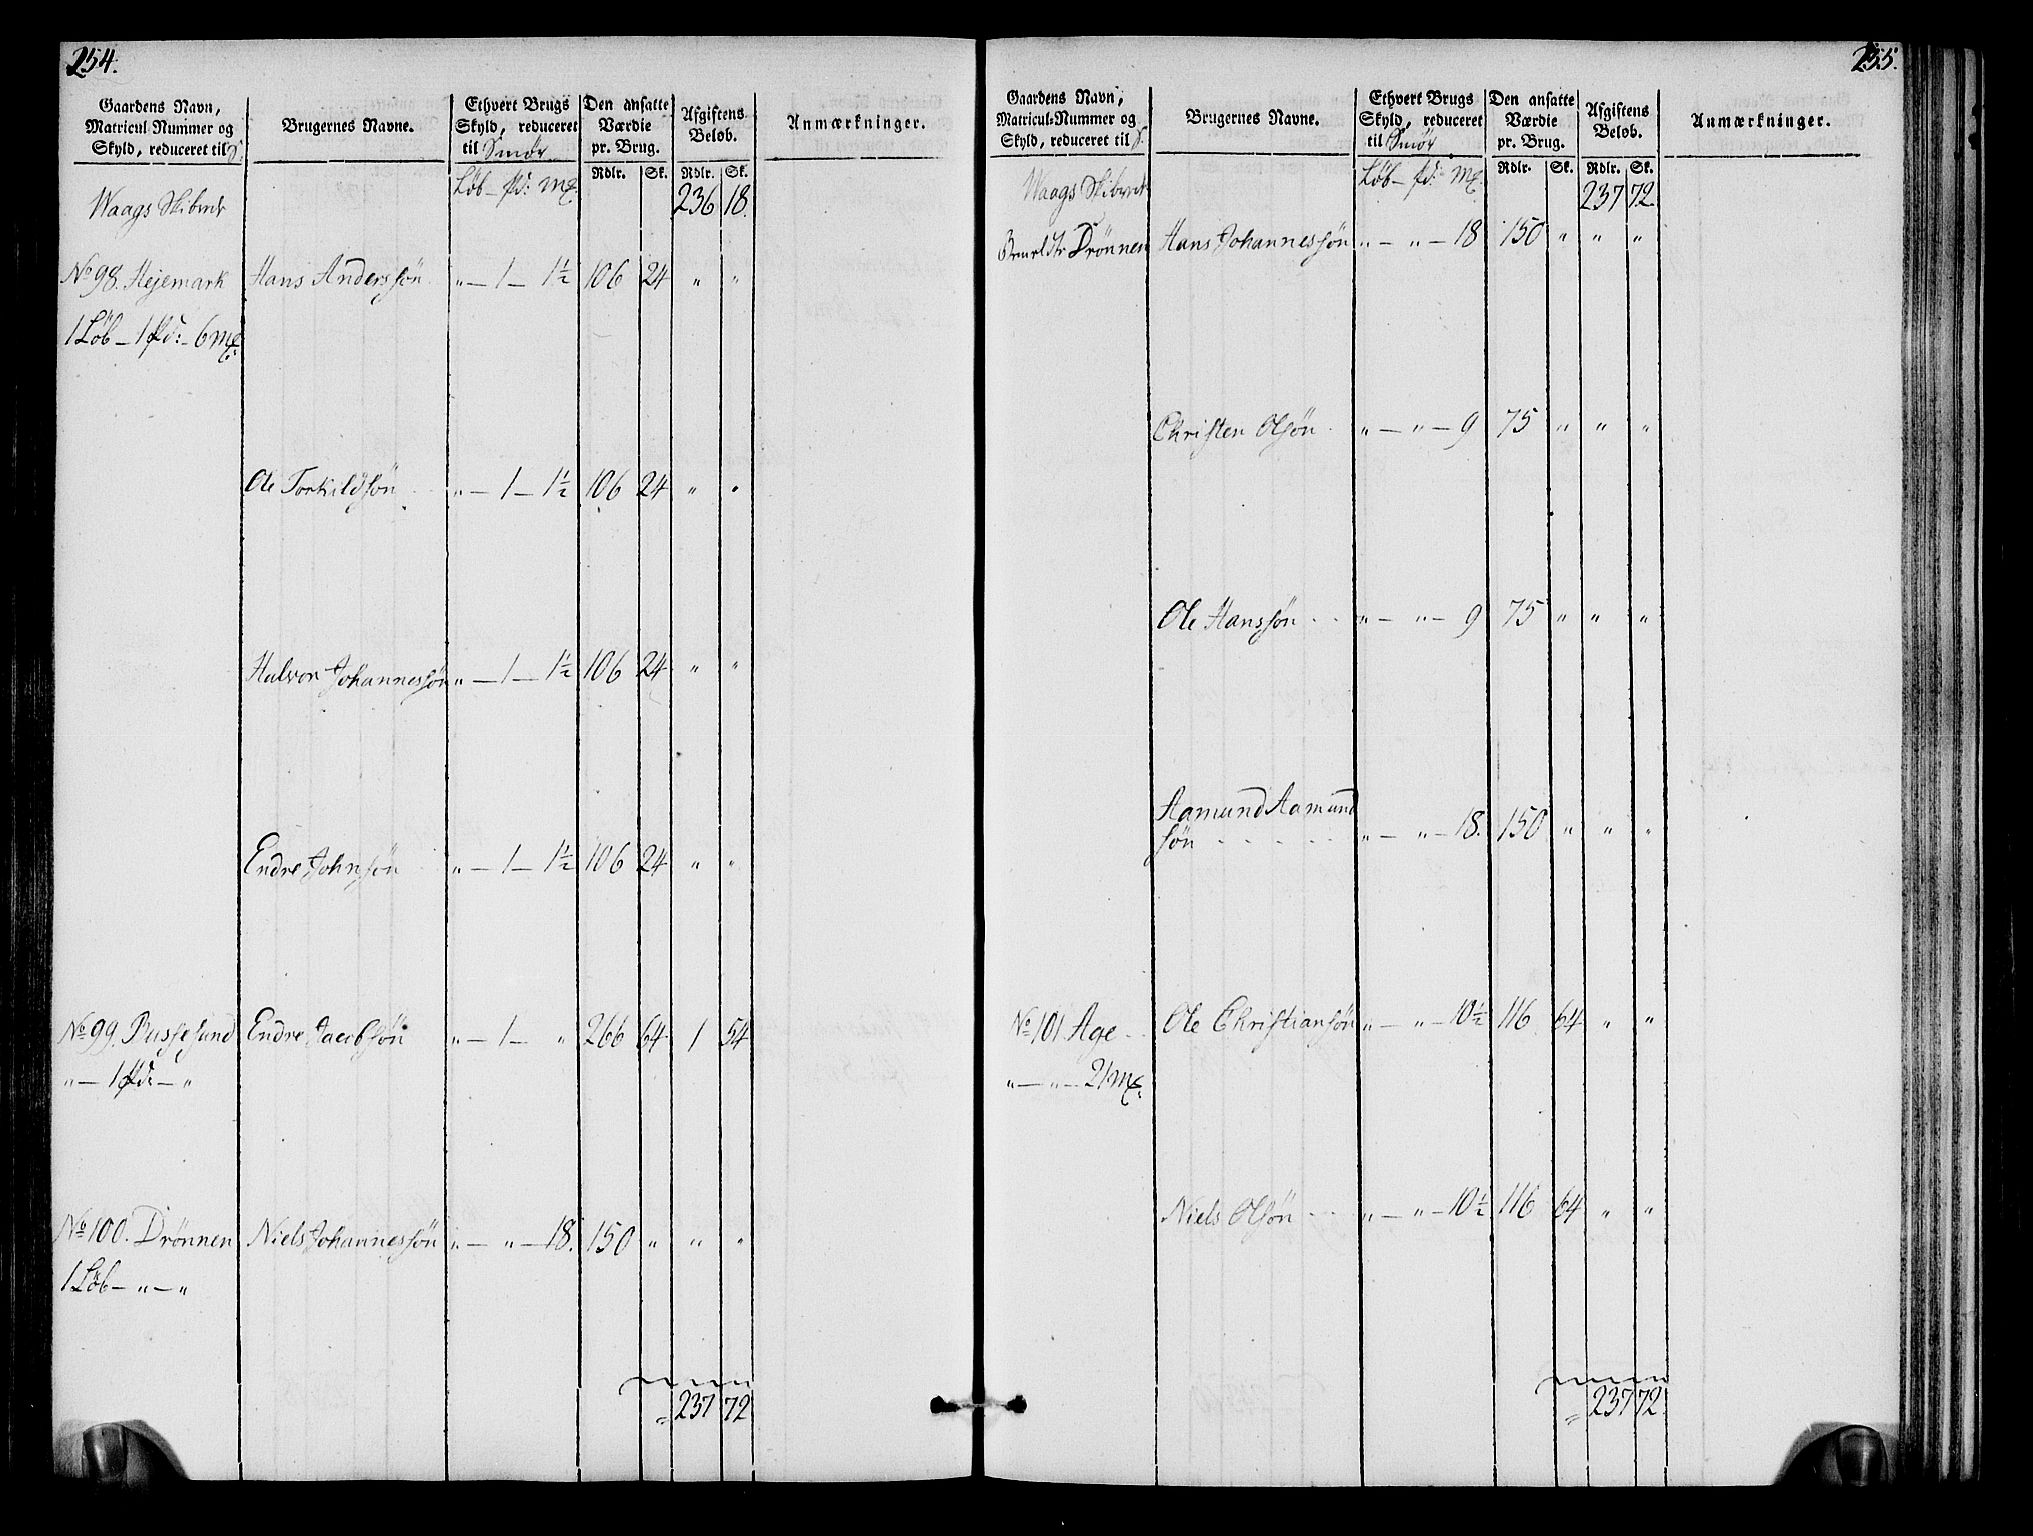 254.
Gaardens Navn, Matricul-Nummer og Skyld, reduceret til S. | Brugernes Navne. | Ethvert Brugs Skyld, reduceret til Smör | Den ansatte Værdie pr. Brug. | Afgiftens Beløb. | Anmærkninger.
Løb – pd: – mK. | Rdlr. | Sk. | Rdlr. | Sk.
Waags Skibrede 236 18.
No 98. Hejemark Hans Anderssøn. " – 1 – 1½ 106 24 " "
1 Løb – 1 pd: – 6 mK:
Ole Torkildsøn " – 1 – 1½ 106 24 " "
Halvor Johannessøn " – 1 – 1½ 106 24 " "
Endre Johnsøn " – 1 – 1½ 106 24 " "
No 99. Bussesund Endre Jacobsøn " – 1 – " 266 64 1 54
" – 1 pd: – "
No 100. Drönnen Niels Johannessøn " – " – 18. 150 " " "
1 Løb – " – "
" 237 72
255.
Gaardens Navn, Matricul-Nummer og Skyld, reduceret til S. | Brugernes Navne. | Ethvert Brugs Skyld, reduceret til Smör | Den ansatte Værdie pr. Brug. | Afgiftens Beløb. | Anmærkninger.
Løb – pd: mK. | Rdlr. | Sk. | Rdlr. | Sk.
Waags Skibrede 237 72.
Drönnen Hans Johannessøn " – " – 18 150 " " "
Christen Olsøn " – " – 9 75 " " "
Ole Hanssøn " – " – 9 75 " " "
Aamund Aamund
søn " – " – 18. 150 " " "
No 101 Age Ole Christiansøn " – " – 10½ 116 64 " "
" – " – 21 mK:
Niels Olsøn " – " – 10½ 116 64 " "
" 237 72